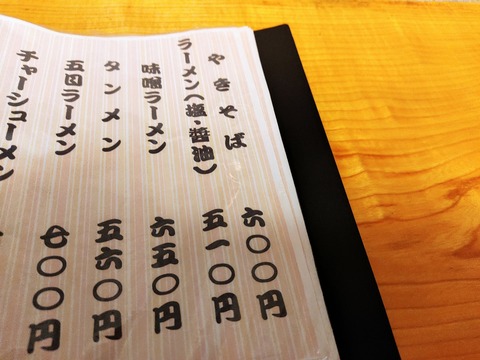 やきそば 六〇〇円
ラーメン(塩・醬油) 五一〇円
味噌ラーメン 六五〇円
タンメン 五六〇円
五目ラーメン 七〇〇円
チャーシューメン